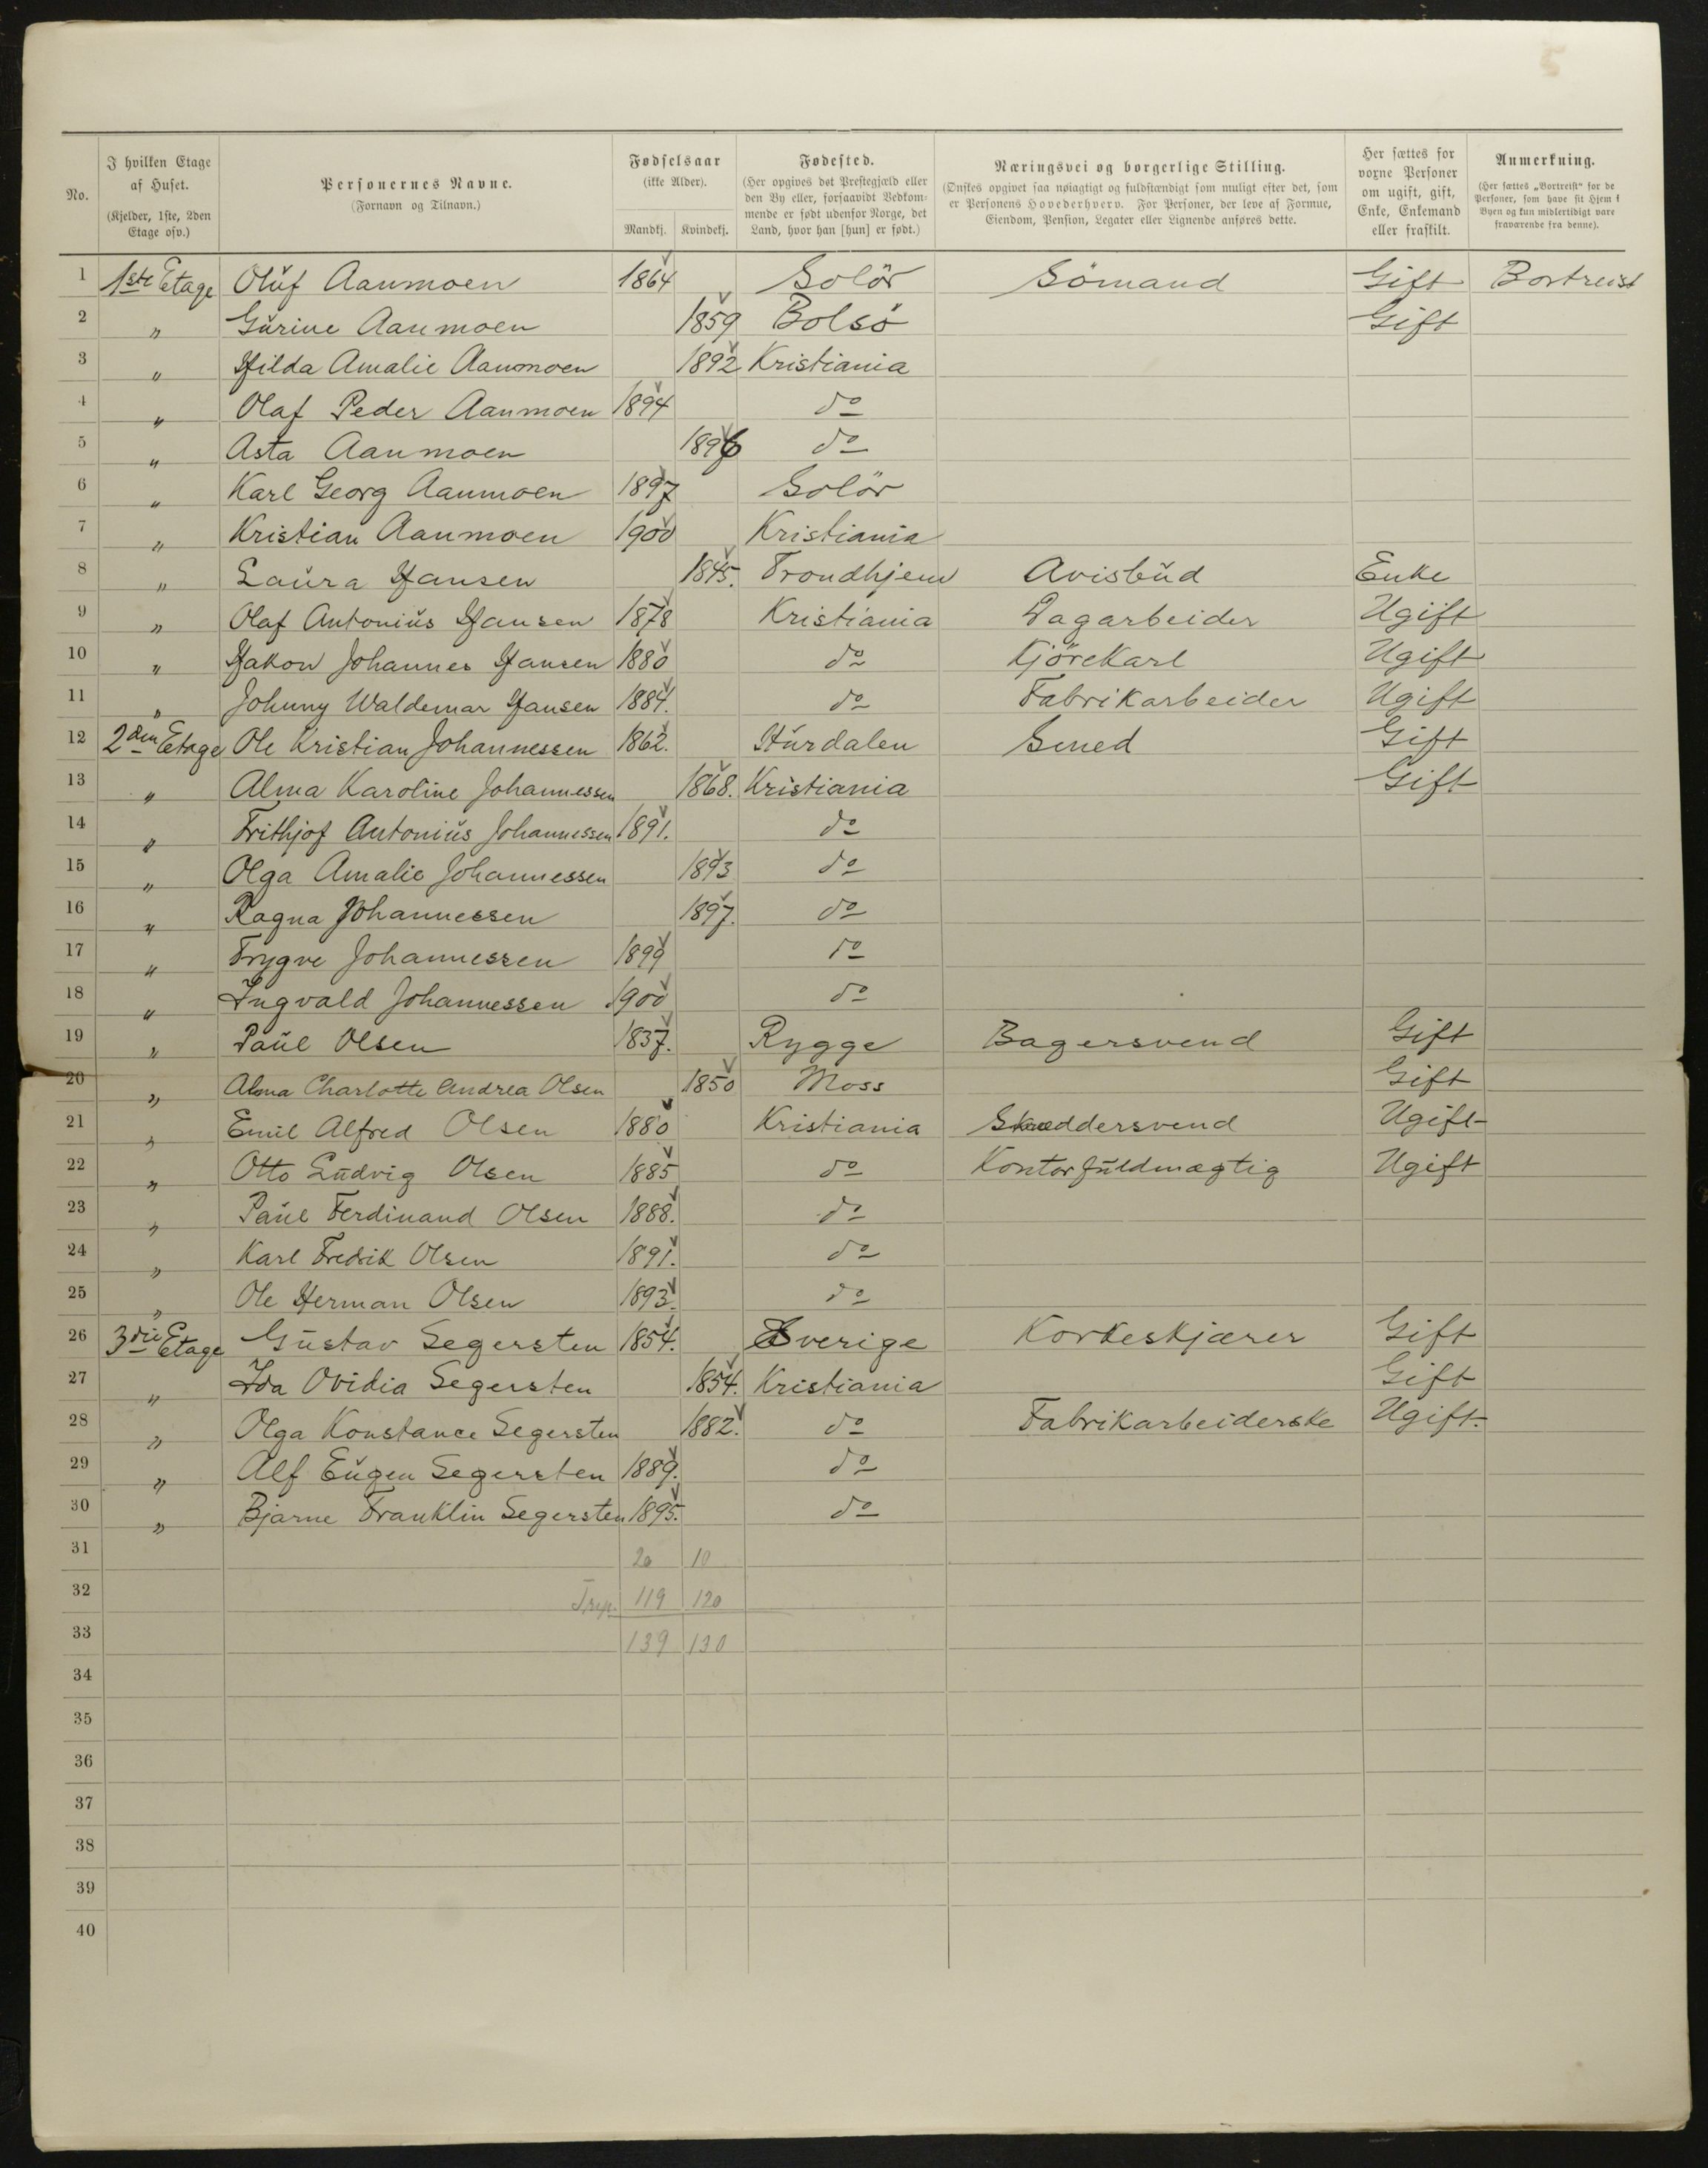 5
No.
I hvilken Etage af Huset. (Kjelder, 1ste, 2den Etage osv.)
Personernes Navne. (Fornavn og Tilnavn.)
Fødselsaar (ikke Alder). Mandkj. Kvindekj.
Fødested. (Her opgives det Prestegjæld eller den By eller, forsaavidt Vedkommende er født udenfor Norge, det Land, hvor han [hun] er født.)
Næringsvei og borgerlige Stilling. (Ønskes opgivet saa nøiagtigt og fuldstændigt som muligt efter det, som er Personens Hovederhverv. For Personer, der leve af Formue, Eiendom, Pension, Legater eller Lignende anføres dette.)
Her sættes for voxne Personer om ugift, gift, Enke, Enkemand eller fraskilt.
Anmerkning. (Her sættes „Bortreist“ for de Personer, som have sit Hjem i Byen og kun midlertidigt vare fraværende fra denne).
1 1ste Etage Oluf Aanmoen 1864 Solör Sömand Gift Bortreist
2 " Gurine Aanmoen 1859 Bolsö Gift
3 " Hilda Amalie Aanmoen 1892 Kristiania
4 " Olaf Peder Aanmoen 1894 do
5 " Asta Aanmoen 1896 do
6 " Karl Georg Aanmoen 1897 Solör
7 " Kristian Aanmoen 1900 Kristiania
8 " Laura Hansen 1845. Trondhjem Avisbud Enke
9 " Olaf Antonius Hansen 1878 Kristiania Dagarbeider Ugift
10 " Hakon Johannes Hansen 1880 do Kjörekarl Ugift
11 " Johnny Waldemar Hansen 1884. do Fabrikarbeider Ugift
12 2den Etage Ole Kristian Johannessen 1862. Hurdalen Smed Gift
13 " Alma Karoline Johannessen 1868. Kristiania Gift
14 " Frithjof Antonius Johannessen 1891. do
15 " Olga Amalie Johannessen 1893 do
16 " Ragna Johannessen 1897. do
17 " Trygve Johannessen 1899 do
18 " Ingvald Johannessen 1900 do
19 " Paul Olsen 1837. Rygge Bagersvend Gift
20 " Alma Charlotte Andrea Olsen 1850 Moss Gift
21 " Emil Alfred Olsen 1880 Kristiania Skræddersvend Ugift
22 " Otto Ludvig Olsen 1885 do Kontorfuldmægtig Ugift
23 " Paul Ferdinand Olsen 1888. do
24 " Karl Fredrik Olsen 1891. do
25 " Ole Herman Olsen 1893. do
26 3die Etage Gustav Segersten 1854. Sverige Korkeskjærer Gift
27 " Ida Ovidia Segersten 1854. Kristiania Gift
28 " Olga Konstance Segersten 1882. do Fabrikarbeiderske Ugift.
29 " Alf Eugen Segersten 1889. do
30 " Bjarne Franklin Segersten 1895. do
31 20 10
32 119 120
33 139 130
34
35
36
37
38
39
40